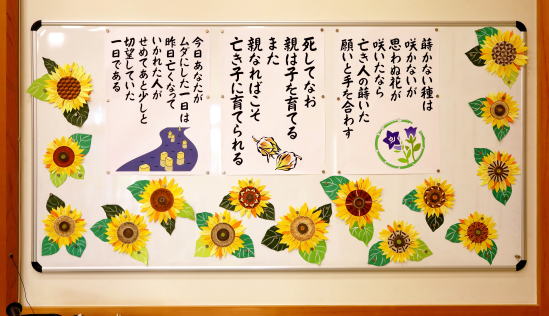 蒔かない種は
咲かないが
思わぬ花が
咲いたなら
亡き人の蒔いた
願いと手を合わす
死してなお
親は子を育てる
また
親なればこそ
亡き子に育てられる
今日あなたが
ムダにした一日は
昨日亡くなって
いかれた人が
せめてあと少しと
切望していた
一日である